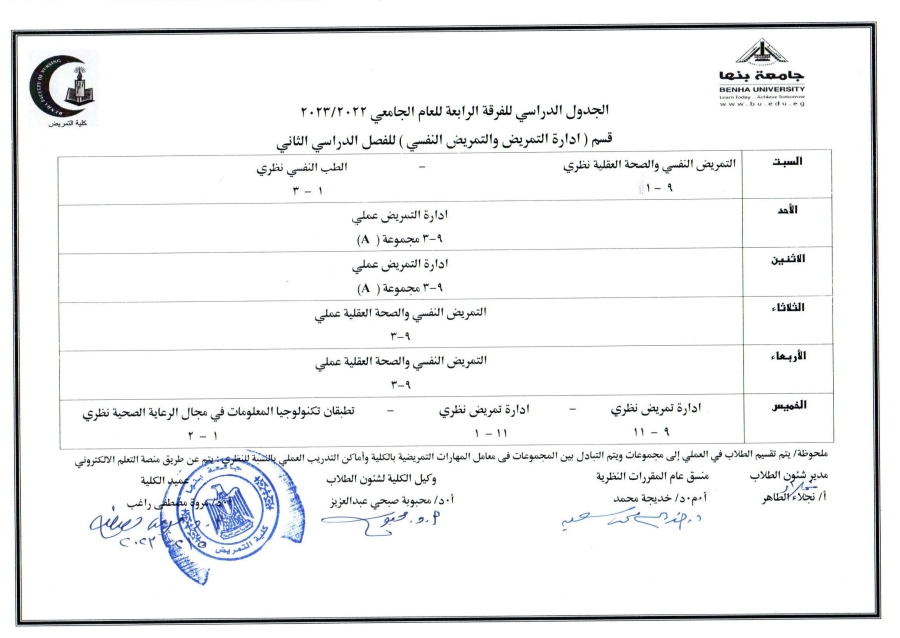 BENHA FACULTY OF NURSING
كلية التمريض
جامعة بنها
BENHA UNIVERSITY
Learn Today .. Achieve Tomorrow
www.bu.edu.eg
الجدول الدراسي للفرقة الرابعة للعام الجامعي ٢٠٢٣/٢٠٢٢
قسم ( ادارة التمريض والتمريض النفسي ) للفصل الدراسي الثاني
السبت
التمريض النفسي والصحة العقلية نظري – الطب النفسي نظري
٩ – ١
١ – ٣
الأحد
ادارة التمريض عملي
٩–٣ مجموعة ( A)
الاثنين
ادارة التمريض عملي
٩–٣ مجموعة ( A)
الثلاثاء
التمريض النفسي والصحة العقلية عملي
٩–٣
الأربعاء
التمريض النفسي والصحة العقلية عملي
٩–٣
الخميس
ادارة تمريض نظري – ادارة تمريض نظري – تطبقان تكنولوجيا المعلومات في مجال الرعاية الصحية نظري
٩ – ١١
١١ – ١
١ – ٢
ملحوظة/ يتم تقسيم الطلاب في العملي إلى مجموعات ويتم التبادل بين المجموعات فى معامل المهارات التمريضية بالكلية وأماكن التدريب العملي بالنسة للنظري : يتم عن طريق منصة التعلم الالكتروني
مدير شئون الطلاب
منسق عام المقررات النظرية
وكيل الكلية لشئون الطلاب
عميد الكلية
أ/ نجلاء الطاهر
أ.م.د/ خديجة محمد
أ.د/ محبوبة صبحي عبدالعزيز
أ.د/ مروة مصطفى راغب
جامعة بنها
كلية التمريض